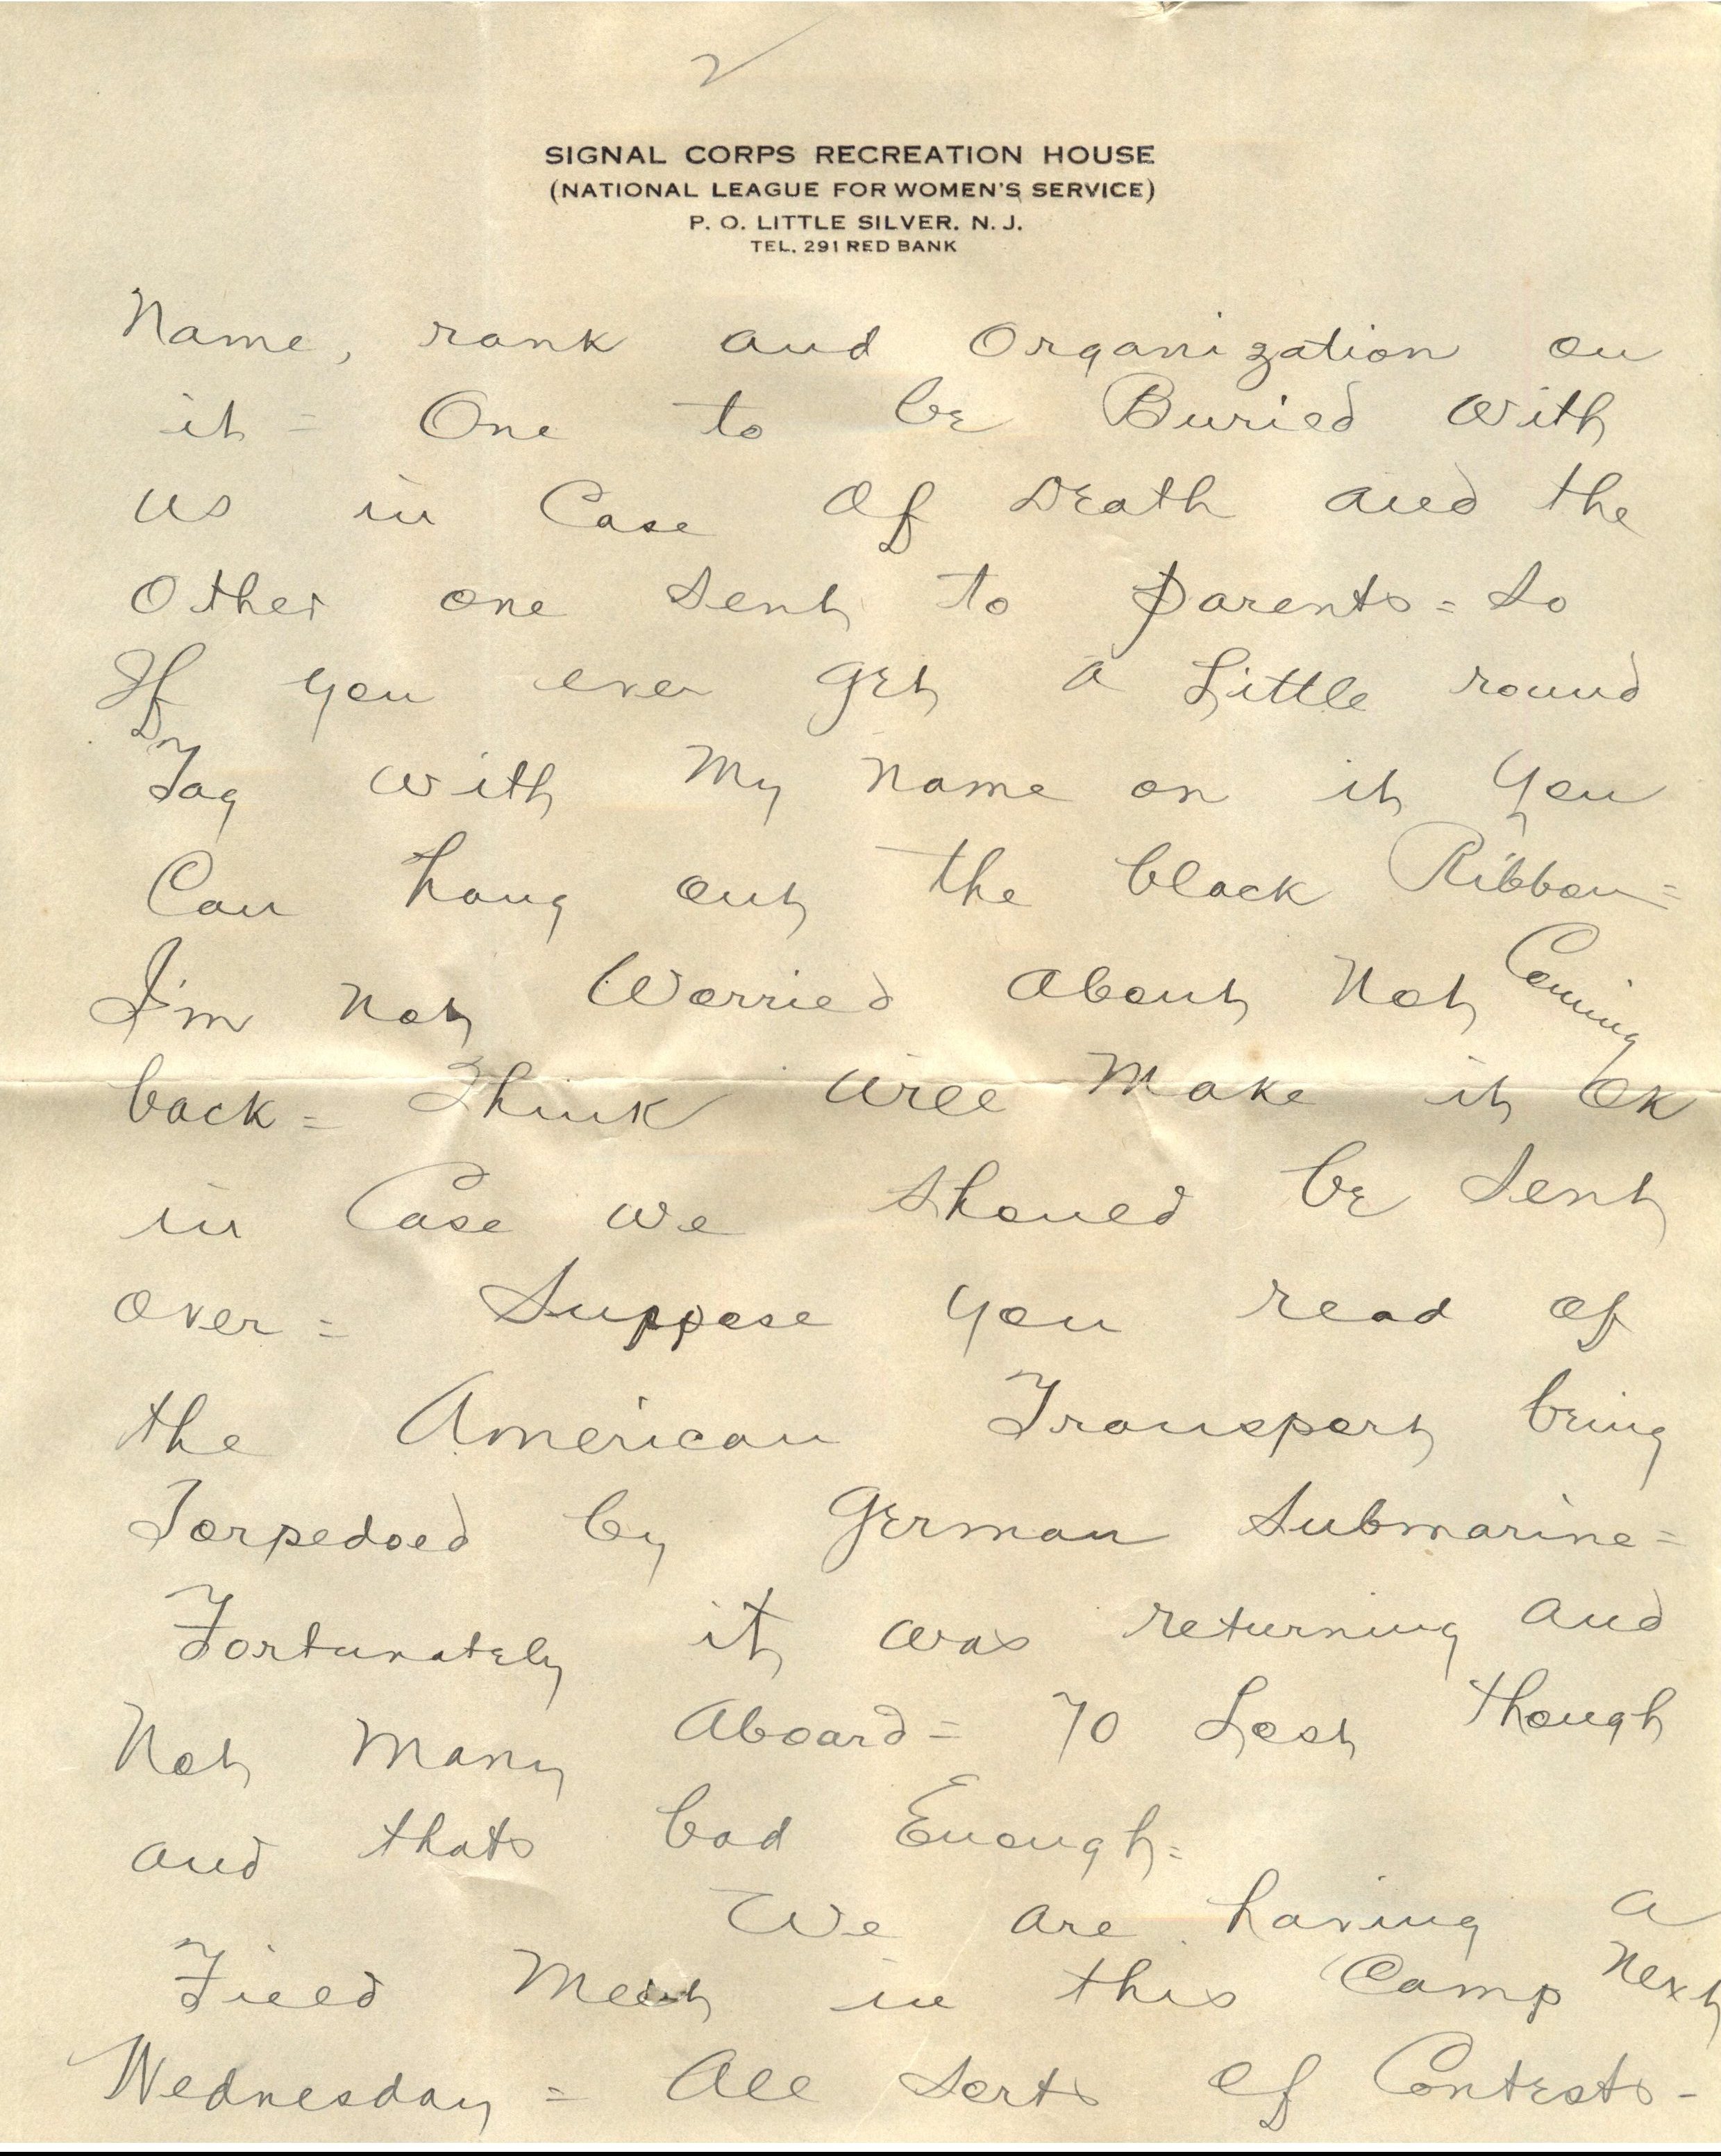 2
SIGNAL CORPS RECREATION HOUSE
(NATIONAL LEAGUE FOR WOMEN'S SERVICE)
P. O. LITTLE SILVER. N. J.
TEL. 291 RED BANK
Name, rank and Organization on
it = One to be Buried with
us in Case of Death and the
Other one sent to parents = So
If you ever get a Little round
Tag with My Name on it you
Can hang out the black Ribbon =
I'm not Worried about Not Coming
back = Think will Make it OK
in Case we should be sent
over = Suppose you read of
the American Transport being
Torpedoed by German Submarine =
Fortunately it was returning and
Not Many Aboard = 70 Lost though
and thats bad Enough =
We are having a
Field Meet in this Camp Next
Wednesday = All sorts of Contests -